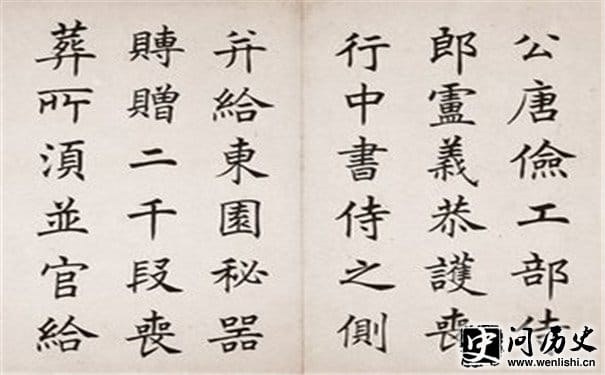 公唐儉工部侍
郎盧義恭護喪
行中書侍之側
并給東園秘器
賻贈二千段喪
葬所須並官給
史 问历史
www.wenlishi.com